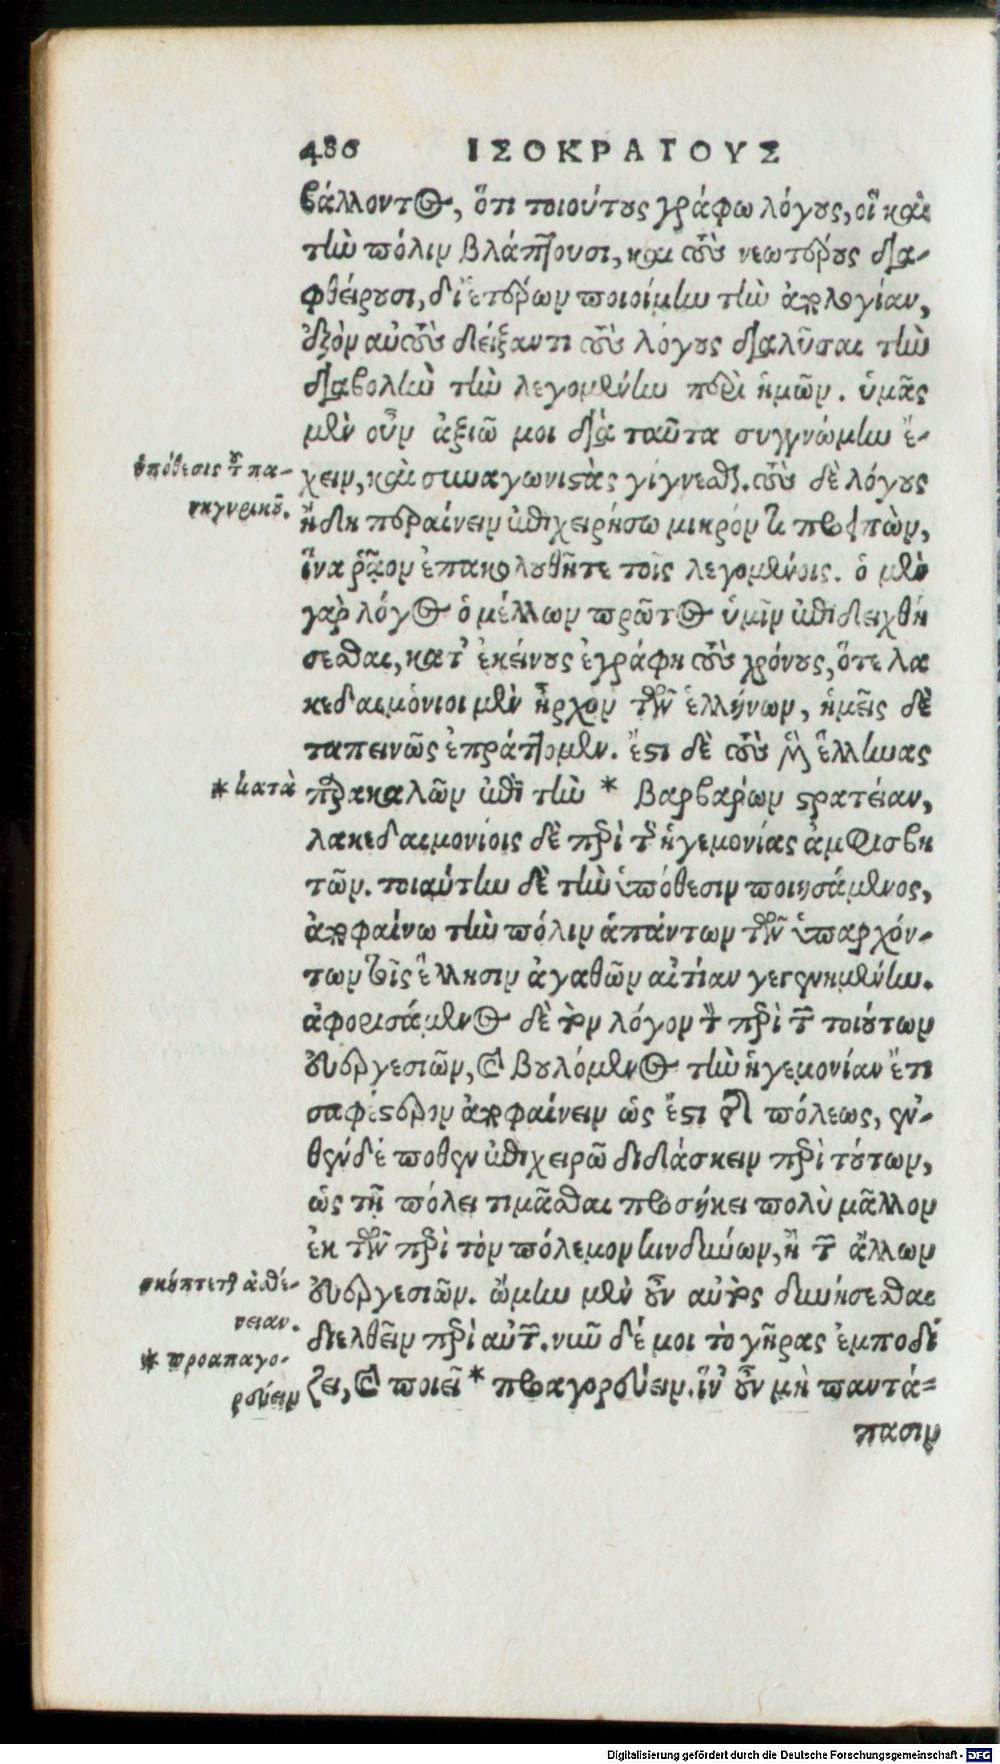 486 ΙΣΟΚΡΑΤΟΥΣ
βάλλοντος, ὅτι τοιούτους γράφω λόγους, οἳ καὶ
τὴν πόλιν βλάπτουσι, καὶ τοὺς νεωτέρους δια-
φθείρουσι, δι' ἑτέρων ποιοίμην τὴν ἀπολογίαν,
ἐξὸν αὐτοὺς δείξαντι τοὺς λόγους διαλῦσαι τὴν
διαβολὴν τὴν λεγομένην περὶ ἡμῶν. ὑμᾶς
μὲν οὖν ἀξιῶ μοι διὰ ταῦτα συγγνώμην ἔ-
ὑπόθεσις τοῦ πα-
χειν, καὶ συναγωνιστὰς γίγνεσθαι. τοὺς δὲ λόγους
νηγυρικοῦ.
ἤδη περαίνειν ἐπιχειρήσω μικρόν τι προειπὼν,
ἵνα ῥᾷον ἐπακολουθῆτε τοῖς λεγομένοις. ὁ μὲν
γὰρ λόγος ὁ μέλλων πρῶτος ὑμῖν ἐπιδειχθή
σεσθαι, κατ' ἐκείνους ἐγράφη τοὺς χρόνους, ὅτε λα
κεδαιμόνιοι μὲν ἦρχον τῶν ἑλλήνων, ἡμεῖς δὲ
ταπεινῶς ἐπράττομεν. ἔστι δὲ τοὺς μὲν ἕλληνας
* κατὰ
παρακαλῶν ἐπὶ τὴν * βαρβάρων στρατείαν,
λακεδαιμονίοις δὲ περὶ τῆς ἡγεμονίας ἀμφισβη
τῶν. τοιαύτην δὲ τὴν ὑπόθεσιν ποιησάμενος,
ἀποφαίνω τὴν πόλιν ἁπάντων τῶν ὑπαρχόν-
των τοῖς ἕλλησιν ἀγαθῶν αἰτίαν γεγενημένην.
ἀφορισάμενος δὲ τὸν λόγον τὸν περὶ τῶν τοιούτων
εὐεργεσιῶν, καὶ βουλόμενος τὴν ἡγεμονίαν ἔτι
σαφέστερον ἀποφαίνειν ὡς ἔστι τῆς πόλεως, ἐν-
θένδέ ποθεν ἐπιχειρῶ διδάσκειν περὶ τούτων,
ὡς τῇ πόλει τιμᾶσθαι προσήκει πολὺ μᾶλλον
ἐκ τῶν περὶ τὸν πόλεμον κινδύνων, ἢ τῶν ἄλλων
σκήπτεται ἀσθέ-
εὐεργεσιῶν. ᾤμην μὲν οὖν αὐτὸς δυνήσεσθαι
νειαν.
διελθεῖν περὶ αὐτῶν. νῦν δέ μοι τὸ γῆρας ἐμποδί
* προαπαγο-
ζει, καὶ ποιεῖ * προαγορεύειν. ἵν' οὖν μὴ παντά-
ρεύειν
πασιν
Digitalisierung gefördert durch die Deutsche Forschungsgemeinschaft - DFG